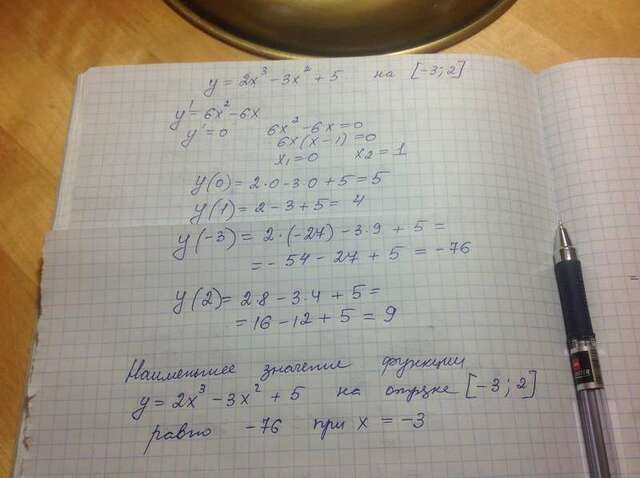 y = 2x³ - 3x² + 5 на [-3; 2]
y' = 6x² - 6x
y' = 0 6x² - 6x = 0
6x(x - 1) = 0
x₁ = 0 x₂ = 1
y(0) = 2·0 - 3·0 + 5 = 5
y(1) = 2 - 3 + 5 = 4
y(-3) = 2·(-27) - 3·9 + 5 =
= - 54 - 27 + 5 = -76
y(2) = 2·8 - 3·4 + 5 =
= 16 - 12 + 5 = 9
Наименьшее значение функции
y = 2x³ - 3x² + 5 на отрезке [-3; 2]
равно -76 при x = -3